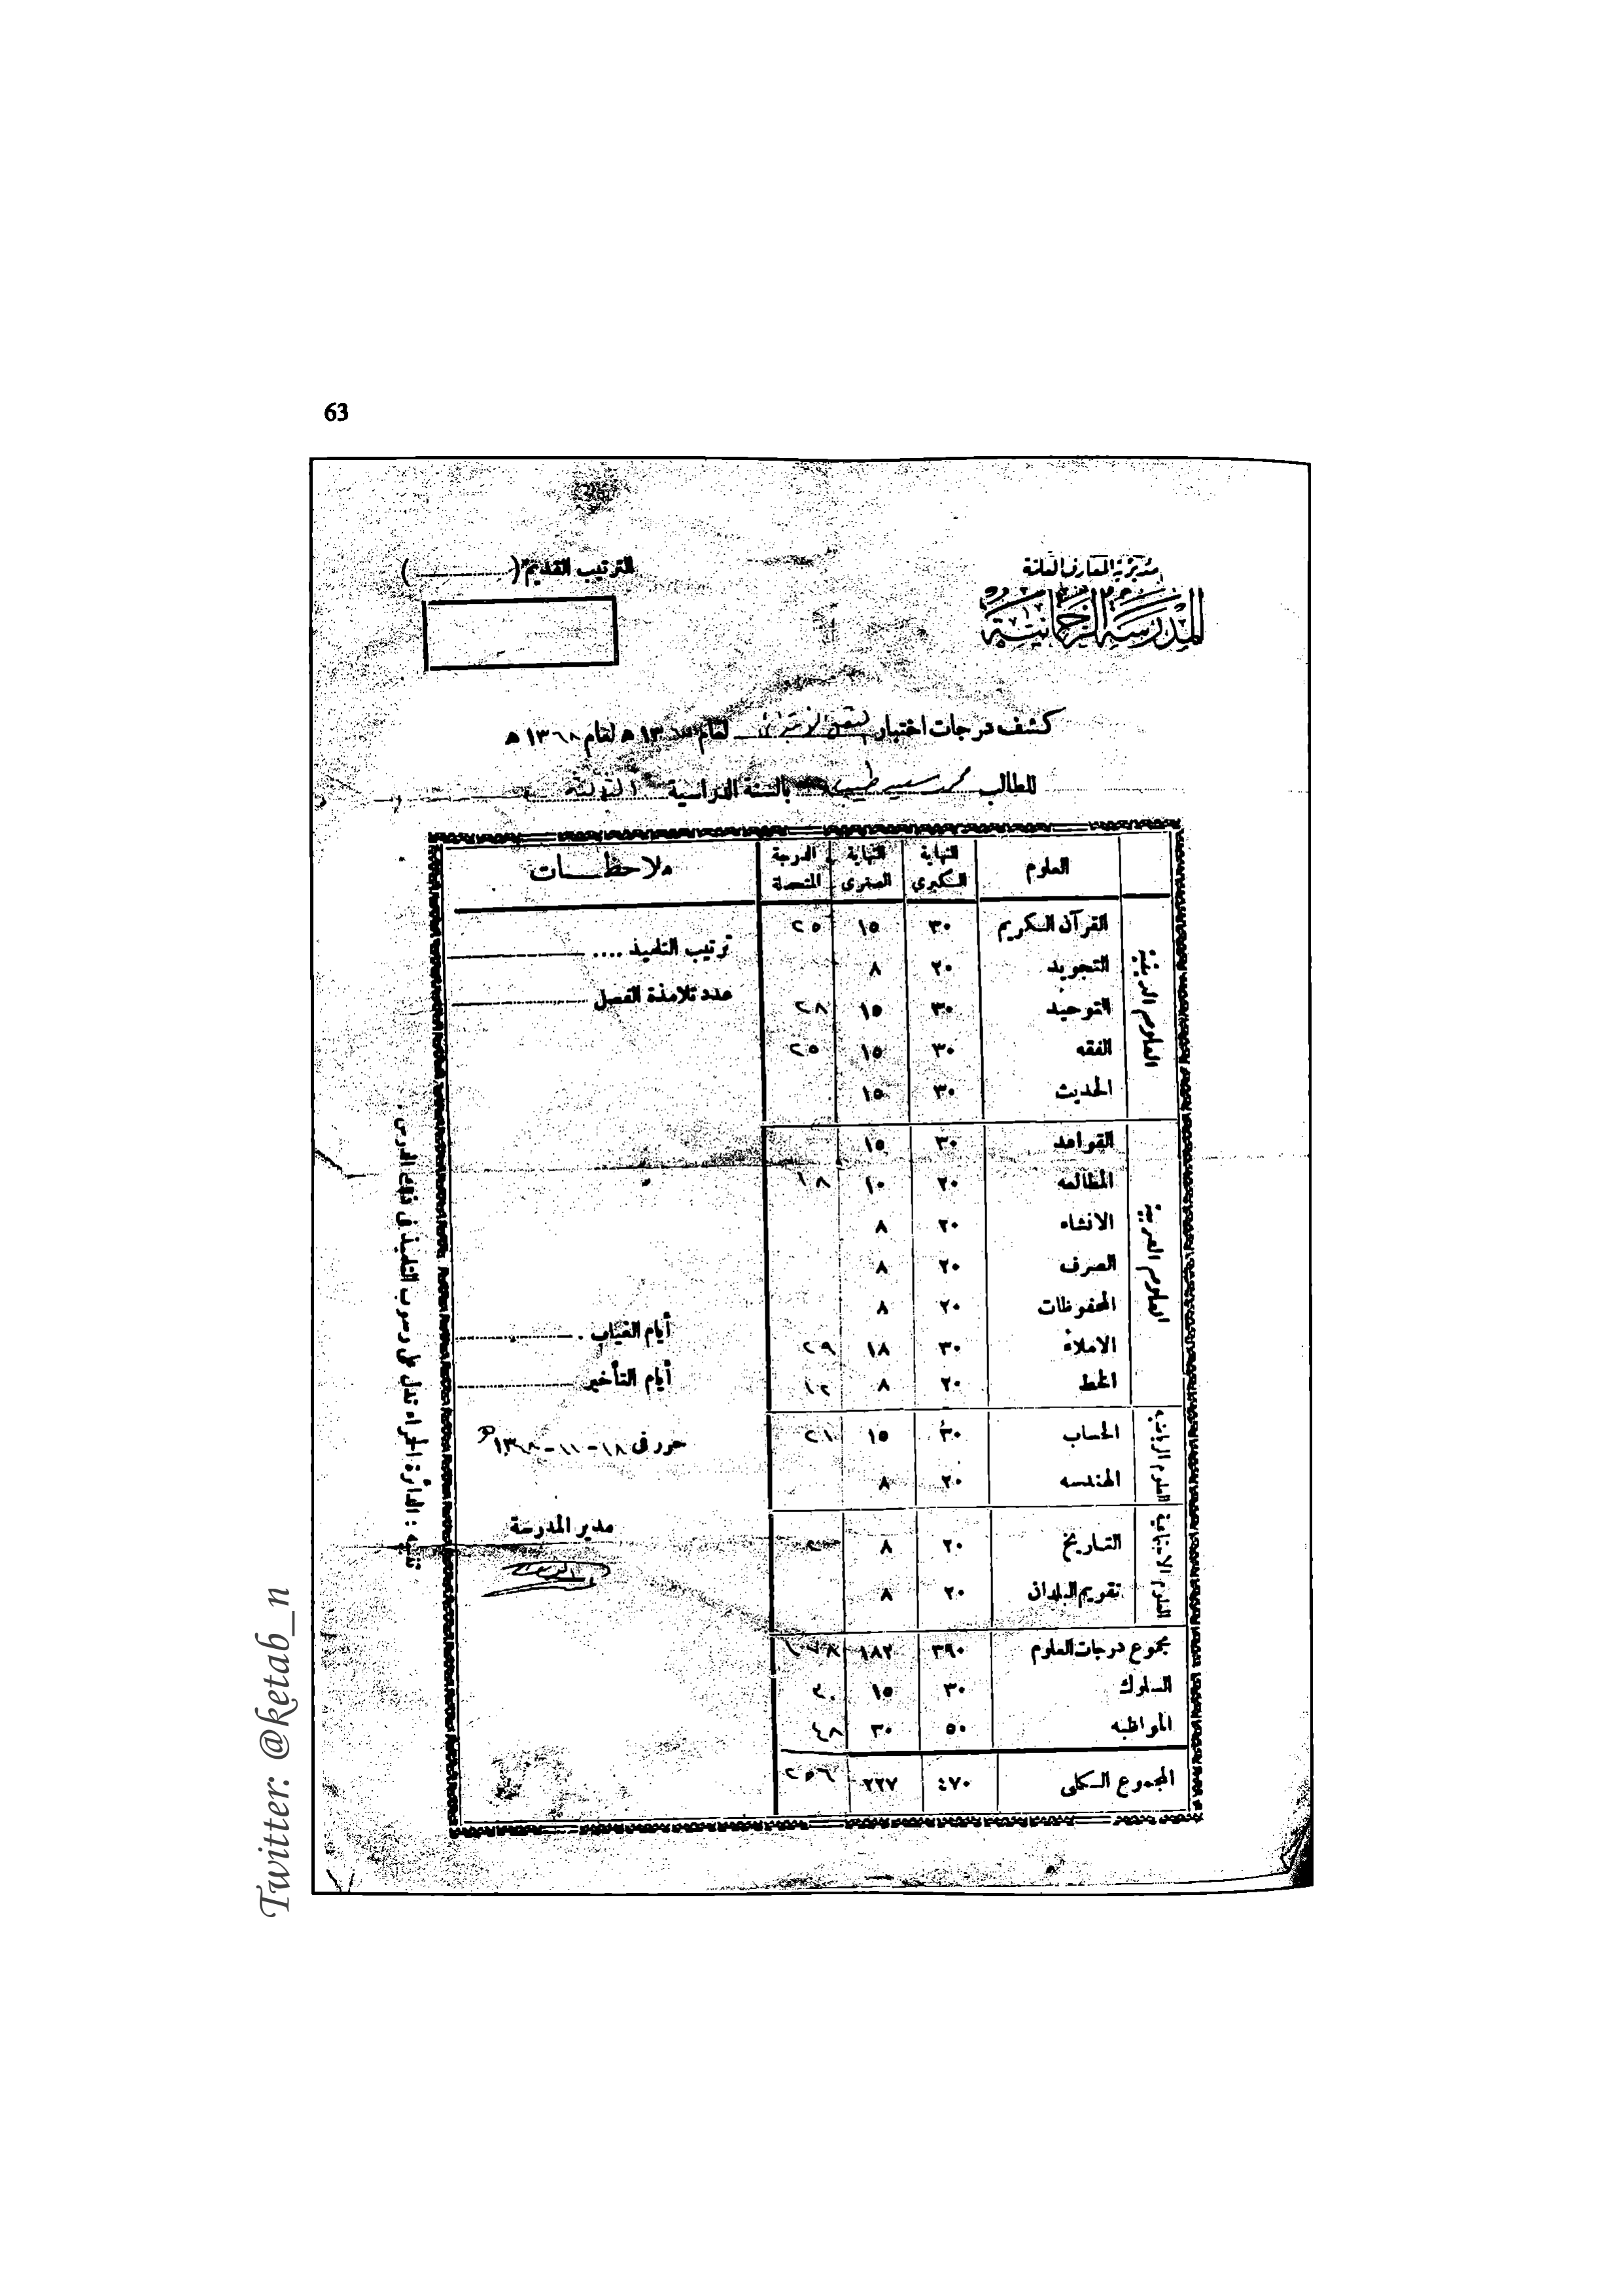 63
مديرية المعارف العامة
المدرسة الرحمانية
الترتيب القديم (..........)
كشف درجات اختبار لعام ١٣ هـ لعام ١٣٦٨ هـ
للطالب محمد سعيد طيب بالسنة الدراسية
العلوم النهاية الكبرى النهاية الصغرى الدرجة المتحصلة ملاحظـــات
العلوم الدينية
القرآن الكريم ٣٠ ١٥ ٢٥
التجويد ٢٠ ٨
التوحيد ٣٠ ١٥ ٢٨
الفقه ٣٠ ١٥ ٢٥
الحديث ٣٠ ١٥
العلوم العربية
القواعد ٣٠ ١٥
المطالعه ٢٠ ١٠ ١٨
الانشاء ٢٠ ٨
الصرف ٢٠ ٨
المحفوظات ٢٠ ٨
الاملاء ٣٠ ١٨ ٢٩
الخط ٢٠ ٨ ١٢
العلوم الرياضية
الحساب ٣٠ ١٥ ٢١
الهندسه ٢٠ ٨
العلوم الاجتماعية
التاريخ ٢٠ ٨
تقويم البلدان ٢٠ ٨
مجموع درجات العلوم ٣٩٠ ١٨٢
السلوك ٣٠ ١٥ ٢٠
المواظبه ٥٠ ٣٠ ٤٨
المجموع الكلى ٤٧٠ ٢٢٧ ٢٥٦
ترتيب التلميذ ....
عدد تلامذة الفصل
أيام الغياب .
أيام التأخير
حرر فى ١٨-١١-١٣٦٨ هـ
مدير المدرسة
تنبيه : الدائرة الحمراء تدل على رسوب التلميذ فى ذلك الدرس .
Twitter: @ketab_n